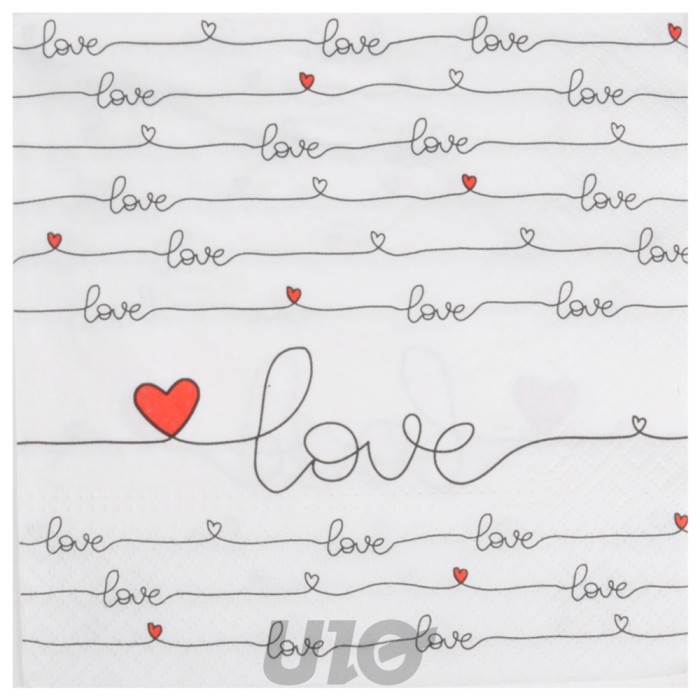 love love love
love love
love love
love love
love love
love love love
love
love love love
love love
love love